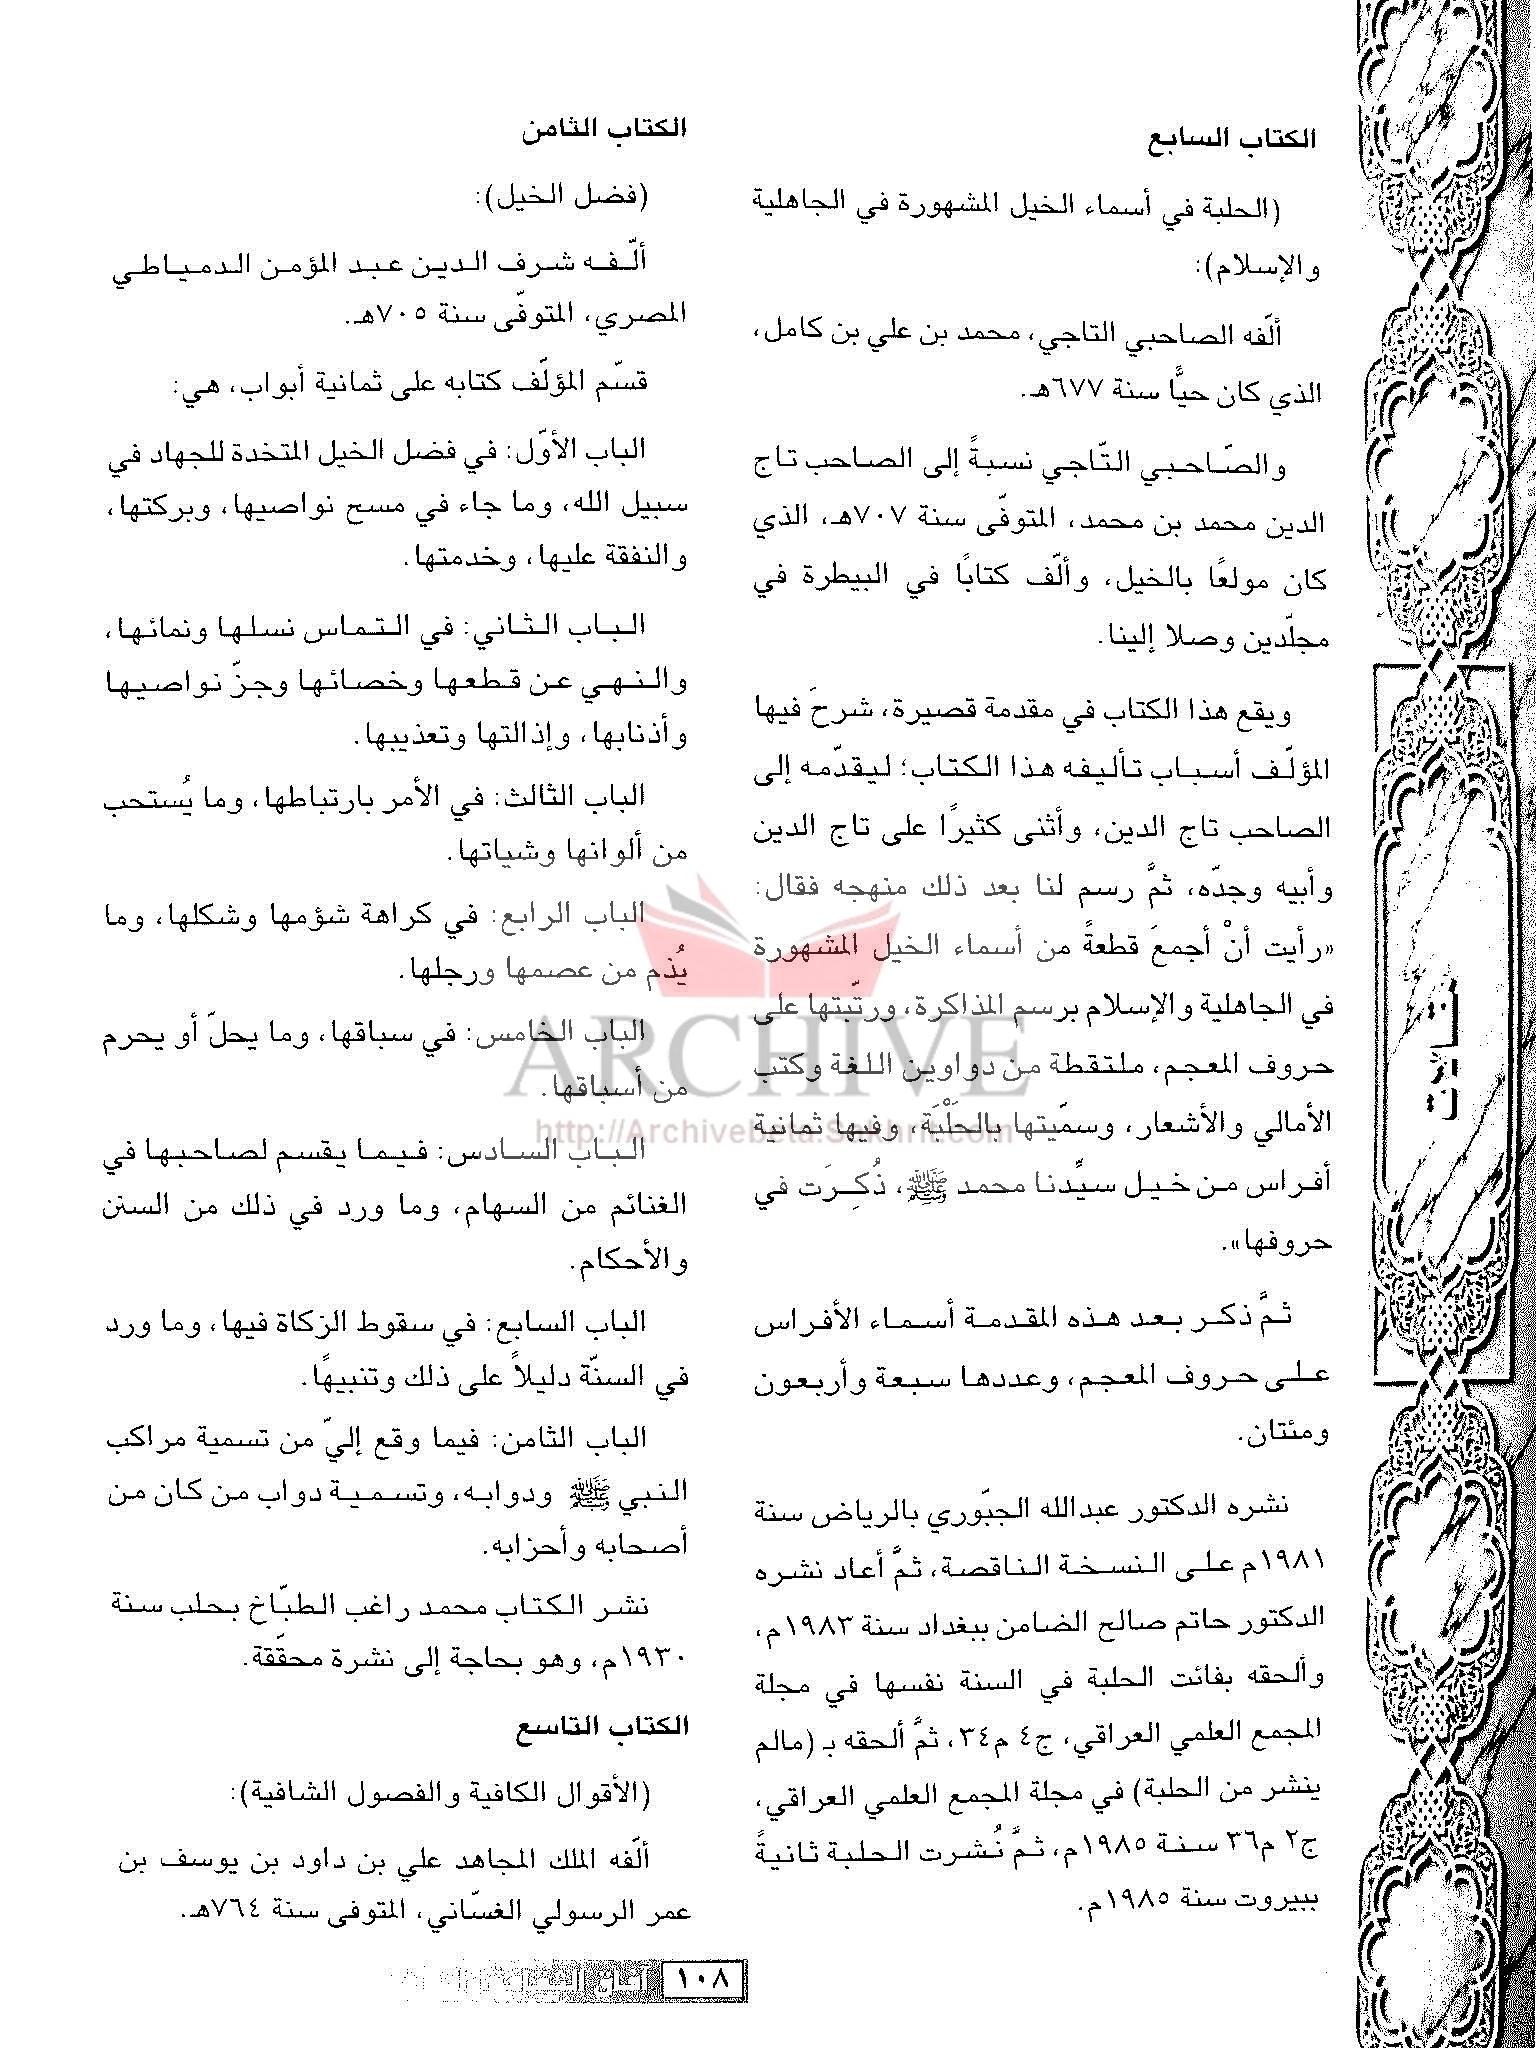 الكتاب السابع
(الحلبة في أسماء الخيل المشهورة في الجاهلية
والإسلام):
ألّفه الصاحبي التاجي، محمد بن علي بن كامل،
الذي كان حيًّا سنة ٦٧٧هـ.
والصّاحبي التّاجي نسبةً إلى الصاحب تاج
الدين محمد بن محمد، المتوفّى سنة ٧٠٧هـ، الذي
كان مولعًا بالخيل، وألّف كتابًا في البيطرة في
مجلّدين وصلا إلينا.
ويقع هذا الكتاب في مقدمة قصيرة، شرحَ فيها
المؤلّف أسباب تأليفه هذا الكتاب؛ ليقدّمه إلى
الصاحب تاج الدين، وأثنى كثيرًا على تاج الدين
وأبيه وجدّه، ثمَّ رسم لنا بعد ذلك منهجه فقال:
«رأيت أنْ أجمعَ قطعةً من أسماء الخيل المشهورة
في الجاهلية والإسلام برسم المذاكرة، ورتّبتها على
حروف المعجم، ملتقطة من دواوين اللغة وكتب
الأمالي والأشعار، وسمّيتها بالحَلْبَة، وفيها ثمانية
أفراس من خيل سيِّدنا محمد ﷺ، ذُكِرَت في
حروفها».
ثمَّ ذكر بعد هذه المقدمة أسماء الأفراس
على حروف المعجم، وعددها سبعة وأربعون
ومئتان.
نشره الدكتور عبدالله الجبّوري بالرياض سنة
١٩٨١م على النسخة الناقصة، ثمَّ أعاد نشره
الدكتور حاتم صالح الضامن ببغداد سنة ١٩٨٣م،
وألحقه بفائت الحلبة في السنة نفسها في مجلة
المجمع العلمي العراقي، ج٤ م٣٤، ثمَّ ألحقه بـ (مالم
ينشر من الحلبة) في مجلة المجمع العلمي العراقي،
ج٢ م٣٦ سنة ١٩٨٥م، ثمَّ نُشرت الحلبة ثانيةً
ببيروت سنة ١٩٨٥م.
الكتاب الثامن
(فضل الخيل):
ألّفه شرف الدين عبد المؤمن الدمياطي
المصري، المتوفّى سنة ٧٠٥هـ.
قسّم المؤلّف كتابه على ثمانية أبواب، هي:
الباب الأوّل: في فضل الخيل المتخدة للجهاد في
سبيل الله، وما جاء في مسح نواصيها، وبركتها،
والنفقة عليها، وخدمتها.
الباب الثاني: في التماس نسلها ونمائها،
والنهي عن قطعها وخصائها وجزّ نواصيها
وأذنابها، وإذالتها وتعذيبها.
الباب الثالث: في الأمر بارتباطها، وما يُستحب
من ألوانها وشياتها.
الباب الرابع: في كراهة شؤمها وشكلها، وما
يُذم من عصمها ورجلها.
الباب الخامس: في سباقها، وما يحلّ أو يحرم
من أسباقها.
الباب السادس: فيما يقسم لصاحبها في
الغنائم من السهام، وما ورد في ذلك من السنن
والأحكام.
الباب السابع: في سقوط الزكاة فيها، وما ورد
في السنّة دليلاً على ذلك وتنبيهًا.
الباب الثامن: فيما وقع إليّ من تسمية مراكب
النبي ﷺ ودوابه، وتسمية دواب من كان من
أصحابه وأحزابه.
نشر الكتاب محمد راغب الطبّاخ بحلب سنة
١٩٣٠م، وهو بحاجة إلى نشرة محقّقة.
الكتاب التاسع
(الأقوال الكافية والفصول الشافية):
ألّفه الملك المجاهد علي بن داود بن يوسف بن
عمر الرسولي الغسّاني، المتوفى سنة ٧٦٤هـ.
مقالات
ARCHIVE
http://Archivebeta.Sakhrit.com
١٠٨